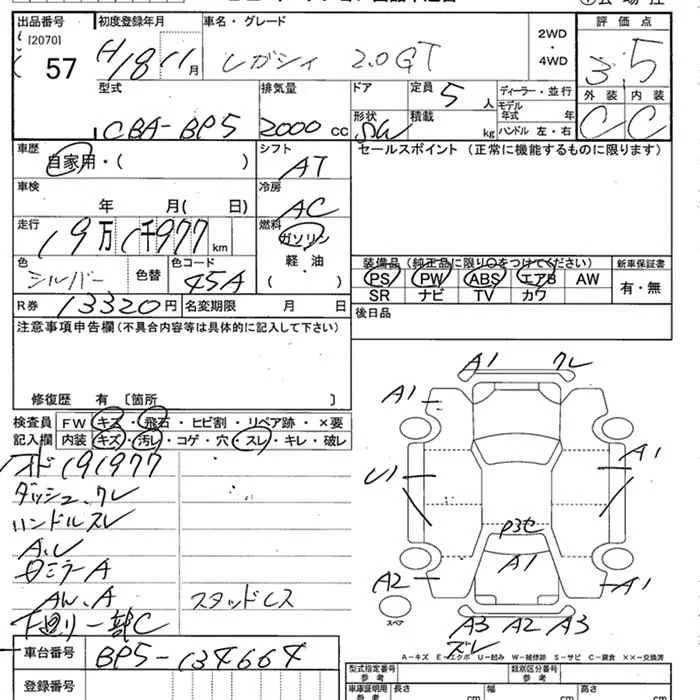 出品番号 初度登録年月 車名・グレード 2WD ・4WD 評価点
[2070]
57 H18 11月 レガシィ 2.0GT 3.5
型式 排気量 ドア 定員 5人 ディーラー・並行 外装 内装
モデル年式 年
CBA-BP5 2000cc 形状 SW 積載 kg ハンドル 左・右 C C
車歴 自家用・( ) シフト AT セールスポイント (正常に機能するものに限ります)
車検 年 月( 日) 冷房 AC
走行 19万1千977km 燃料 ガソリン 軽・油 ( )
装備品(純正品に限り○をつけてください) 新車保証書
色 シルバー 色替 色コード 45A
PS PW ABS エアB AW 有・無
SR ナビ TV カワ
R券 13320円 名変期限 月 日 後日品
注意事項申告欄(不具合内容等は具体的に記入して下さい)
修復歴 有 〔箇所 〕
検査員記入欄 FW キズ・飛石・ヒビ割・リペア跡・×要
内装 キズ・汚レ・コゲ・穴・スレ・キレ・破レ
メオド191977
ダッシュ、ワレ
ハンドルスレ
A、U
ミラーA
AW、A スタッドレス
下廻り一部C
A1 ワレ
A1
A1
U1
P3セ
A1
A2
A1
スペア
A3 A2 A3
ズレ
A-キズ E-エクボ U-凹み W-補修跡 S-サビ C-腐食 ××-交換済
車台番号 BP5-134664
登録番号
型式指定番号 参考 類別区分番号 参考
車庫証明用 参考 長さ cm 幅 cm 高さ cm